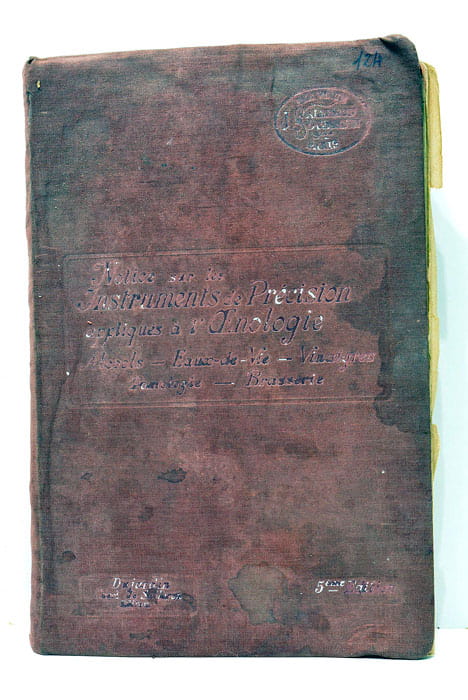 124
Notice sur les
Instruments de Précision
appliqués à l'Œnologie
Alcools — Eaux-de-Vie — Vinaigres
Pomologie — Brasserie
Dujardin
5ème Edition